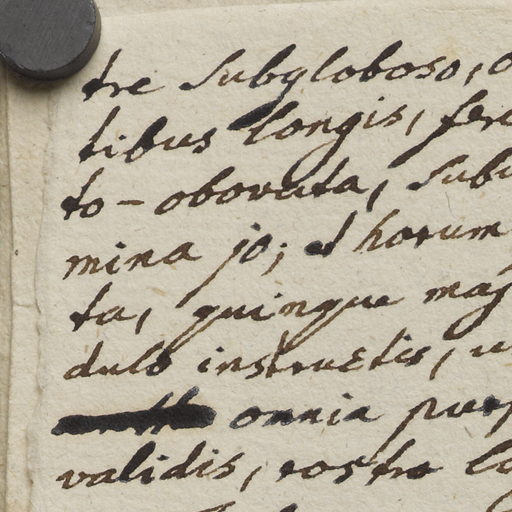 tre subgloboso,
tibus longis, fer
to-obovata, sub
mina jo; et horum
ta, quinque maj
dulo instructis, u
omnia purp
validis, rostro lo